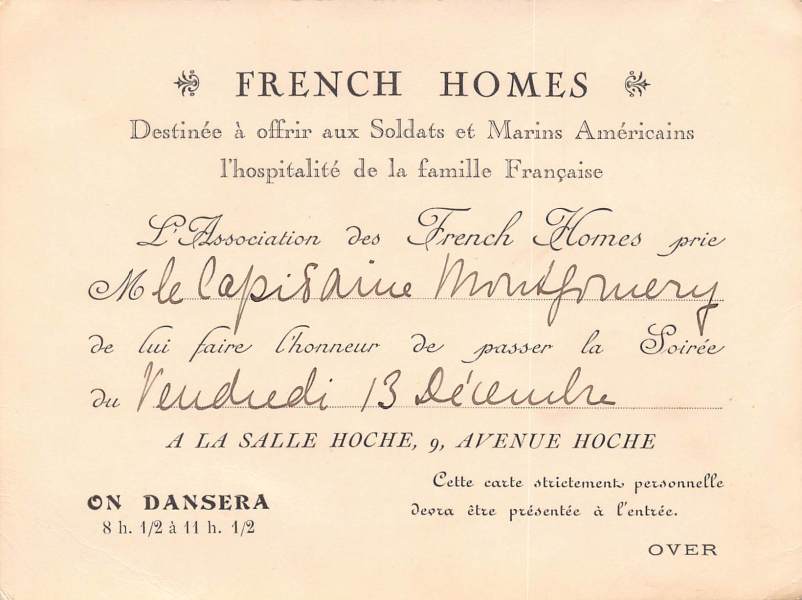 FRENCH HOMES
Destinée à offrir aux Soldats et Marins Américains
l'hospitalité de la famille Française
L'Association des French Homes prie
M le Capitaine Montgomery
de lui faire l'honneur de passer la Soirée
du Vendredi 13 Décembre
A LA SALLE HOCHE, 9, AVENUE HOCHE
Cette carte strictement personnelle
devra être présentée à l'entrée.
ON DANSERA
8 h. 1/2 à 11 h. 1/2
OVER